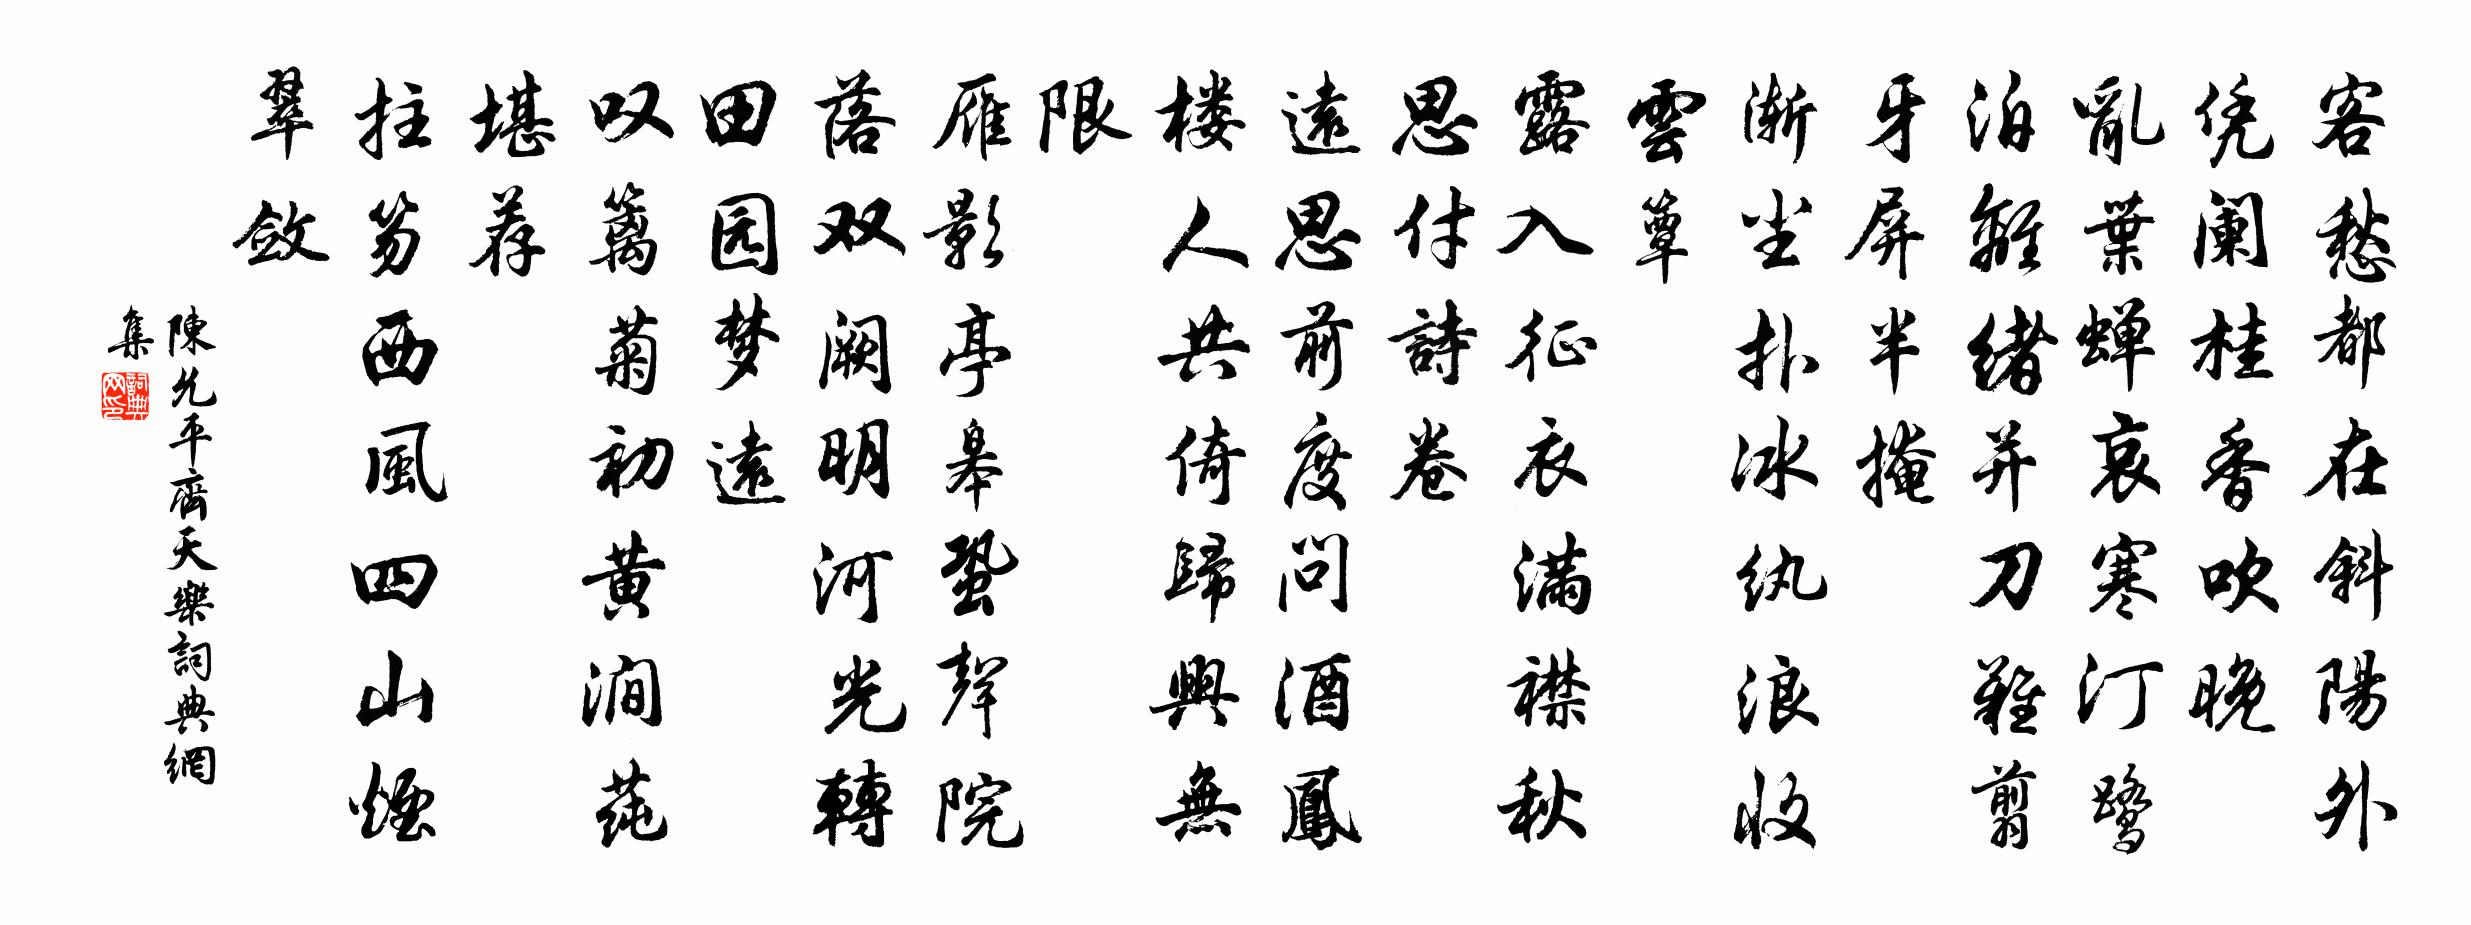 客愁都在斜陽外
凭阑桂香吹晚
亂葉蝉哀寒汀鹭
泊離緒并刀難剪
牙屏半掩
渐尘扑冰纨浪收
雲簟
露入征衣满襟秋
思付詩卷
遠思前度問酒鳳
楼人共倚歸興無
限
雁影亭皋蛩聲院
落双阙明河光轉
田园梦遠
叹篱菊初黄澗莼
堪荐
拄笏西風四山煙
翠敛
陳允平齊天樂詞典網
集
詞典
网印